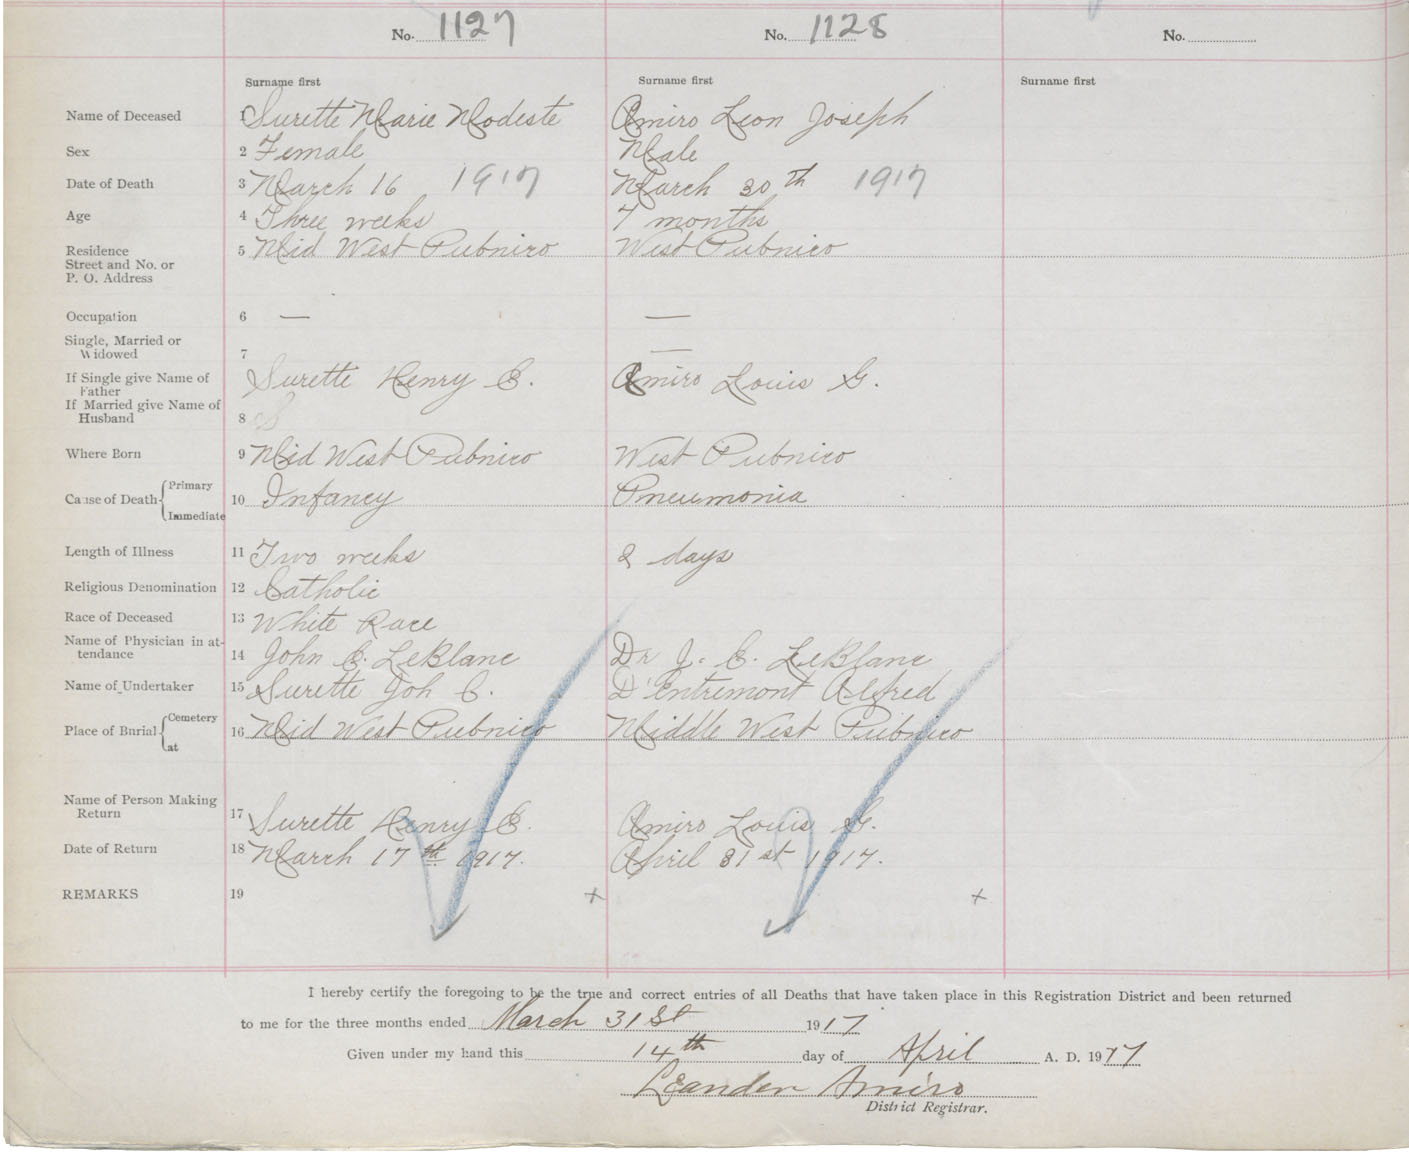 No. 1127 No. 1128 No.
Surname first Surname first Surname first
Name of Deceased 1 Surette Marie Modeste Amiro Leon Joseph
Sex 2 Female Male
Date of Death 3 March 16 1917 March 30th 1917
Age 4 Three weeks 7 months
Residence 5 Mid West Pubnico West Pubnico
Street and No. or
P. O. Address
Occupation 6 — —
Single, Married or
Widowed 7 —
If Single give Name of Surette Henry E. Amiro Louis G.
Father
If Married give Name of
Husband 8 S
Where Born 9 Mid West Pubnico West Pubnico
Primary
Cause of Death 10 Infancy Pneumonia
Immediate
Length of Illness 11 Two weeks 2 days
Religious Denomination 12 Catholic
Race of Deceased 13 White Race
Name of Physician in at-
tendance 14 John E. LeBlanc Dr J. E. LeBlanc
Name of Undertaker 15 Surette Joh C. D'Entremont Alfred
Cemetery
Place of Burial 16 Mid West Pubnico Middle West Pubnico
at
Name of Person Making
Return 17 Surette Henry E. Amiro Louis G.
Date of Return 18 March 17th 1917. April 31st 1917.
REMARKS 19 + +
I hereby certify the foregoing to be the true and correct entries of all Deaths that have taken place in this Registration District and been returned
to me for the three months ended March 31st 1917
Given under my hand this 14th day of April A. D. 1917
Leander Amiro
District Registrar.